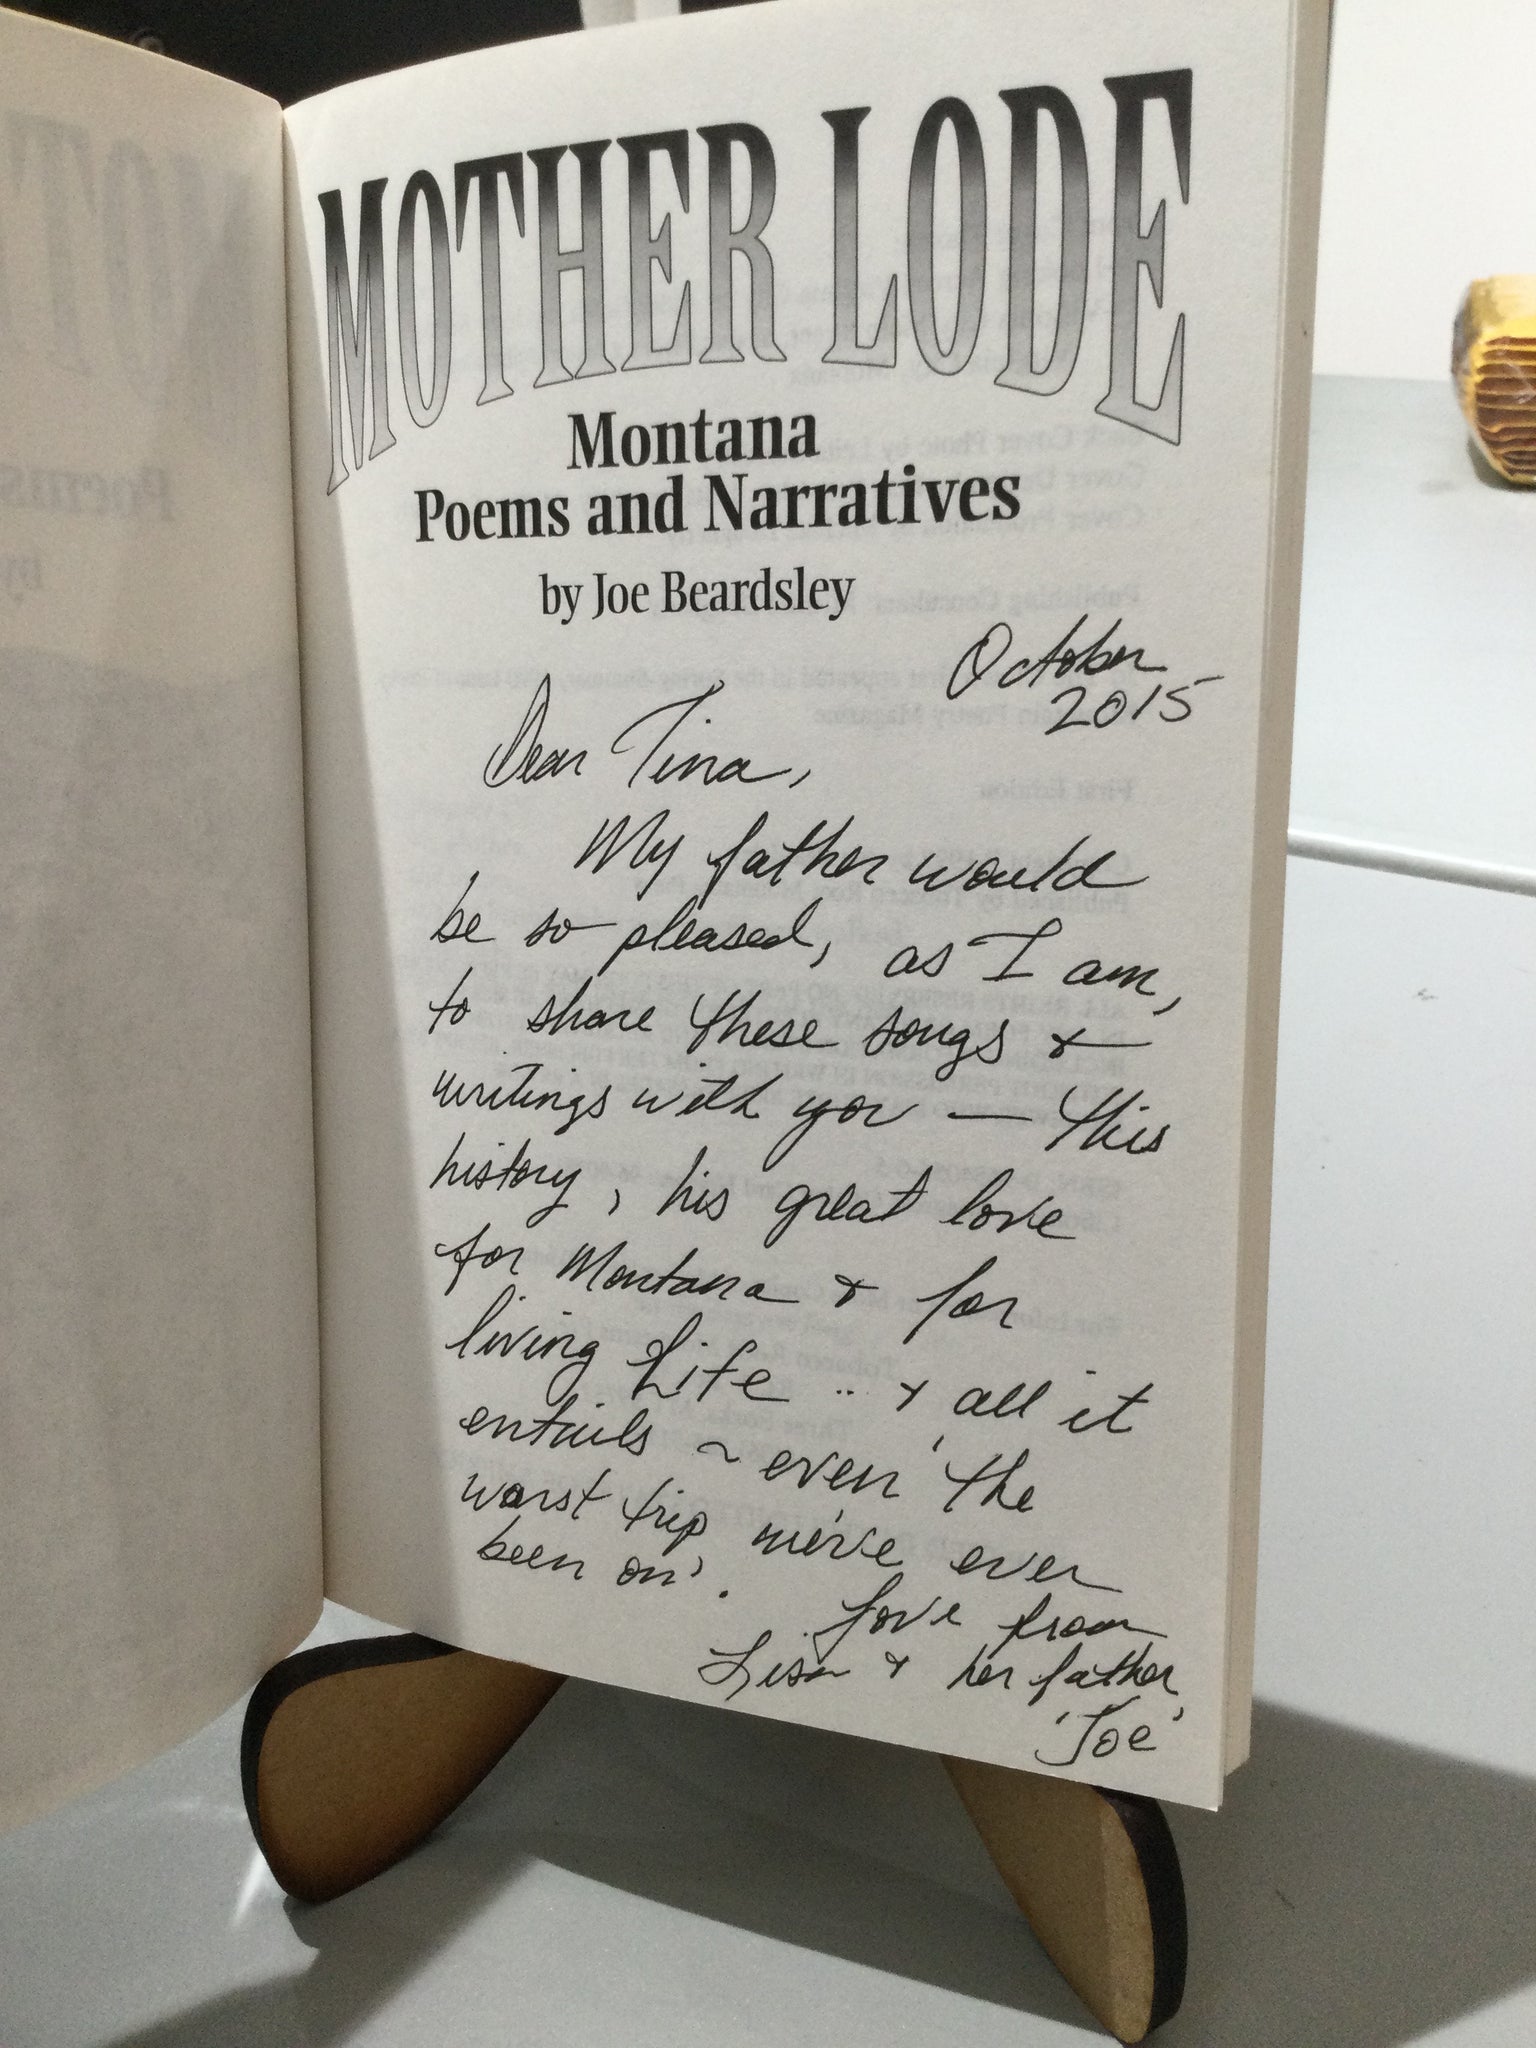 MOTHER LODE
Montana
Poems and Narratives
by Joe Beardsley
October
2015
Dear Tina,
My father would
be so pleased, as I am,
to share these songs &
writings with you — this
history, his great love
for Montana & for
living Life .. & all it
entails ~ even 'the
worst trip we've ever
been on'.
Love from
Lisa & her father,
'Joe'